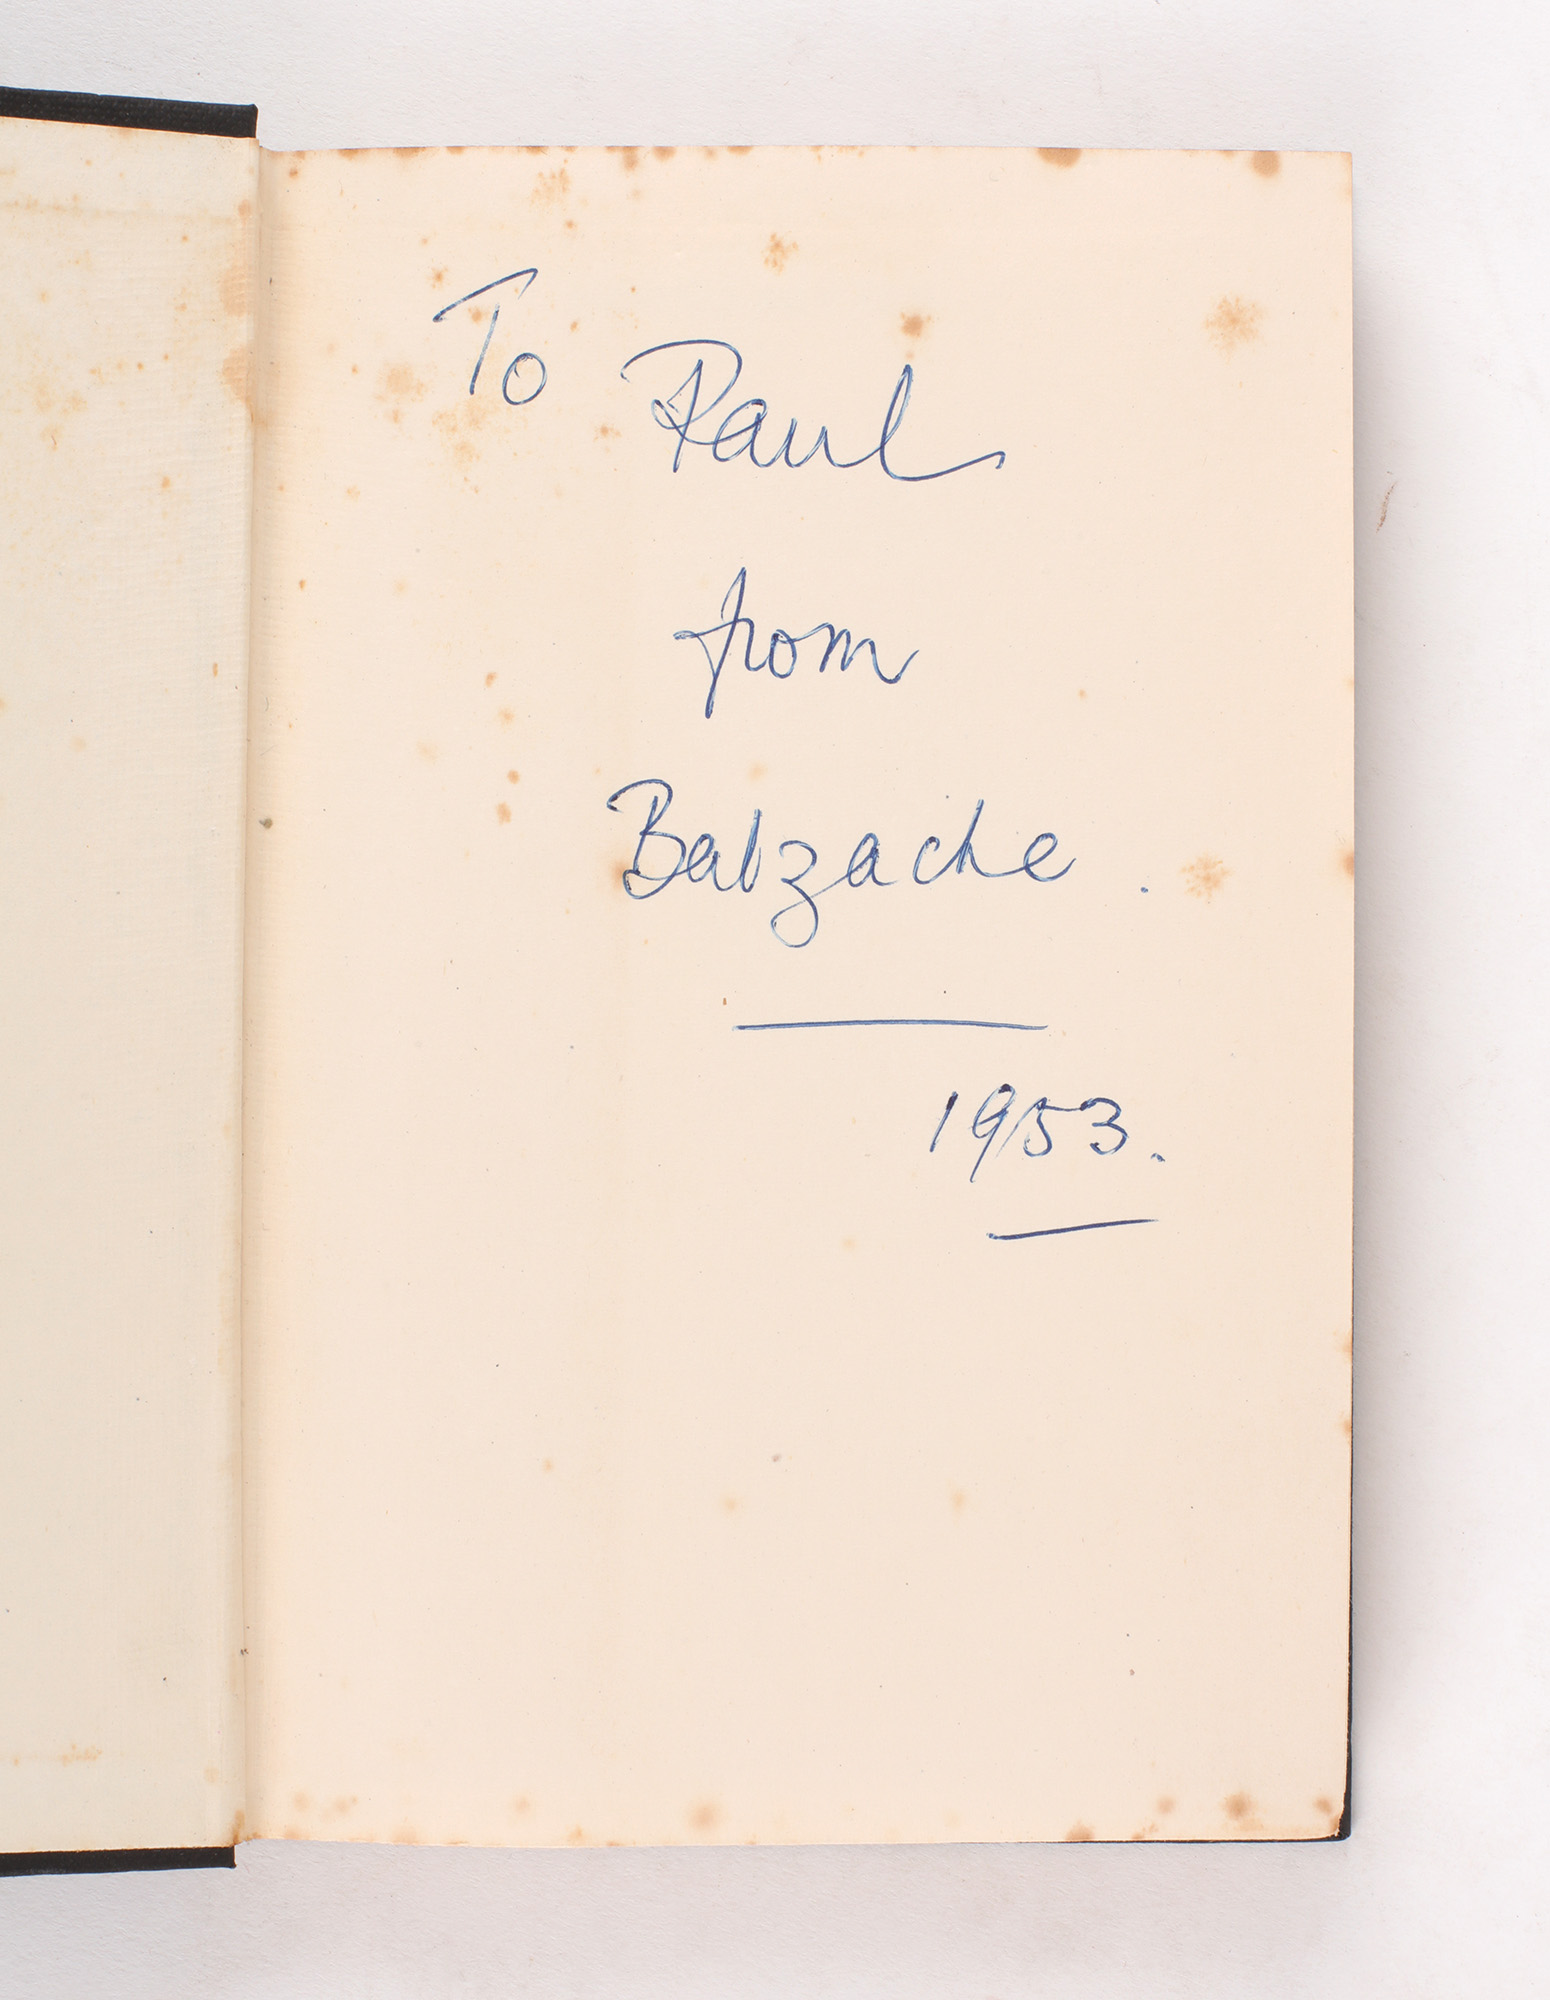 To Raul
from
Balzache.
1953.